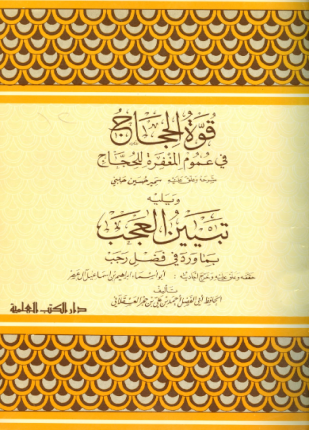 قوة الحجاج
في عموم المغفرة للحجاج
شرحه وعلق عليه سمير حسين حلبي
ويليه
تبيين العجب
بما ورد في فضل رجب
حققه وعلق عليه وخرج أحاديثه : أبو أسماء إبراهيم بن إسماعيل آل عصر
تأليف
الحافظ أبي الفضل أحمد بن علي بن حجر العسقلاني
دار الكتب العلمية